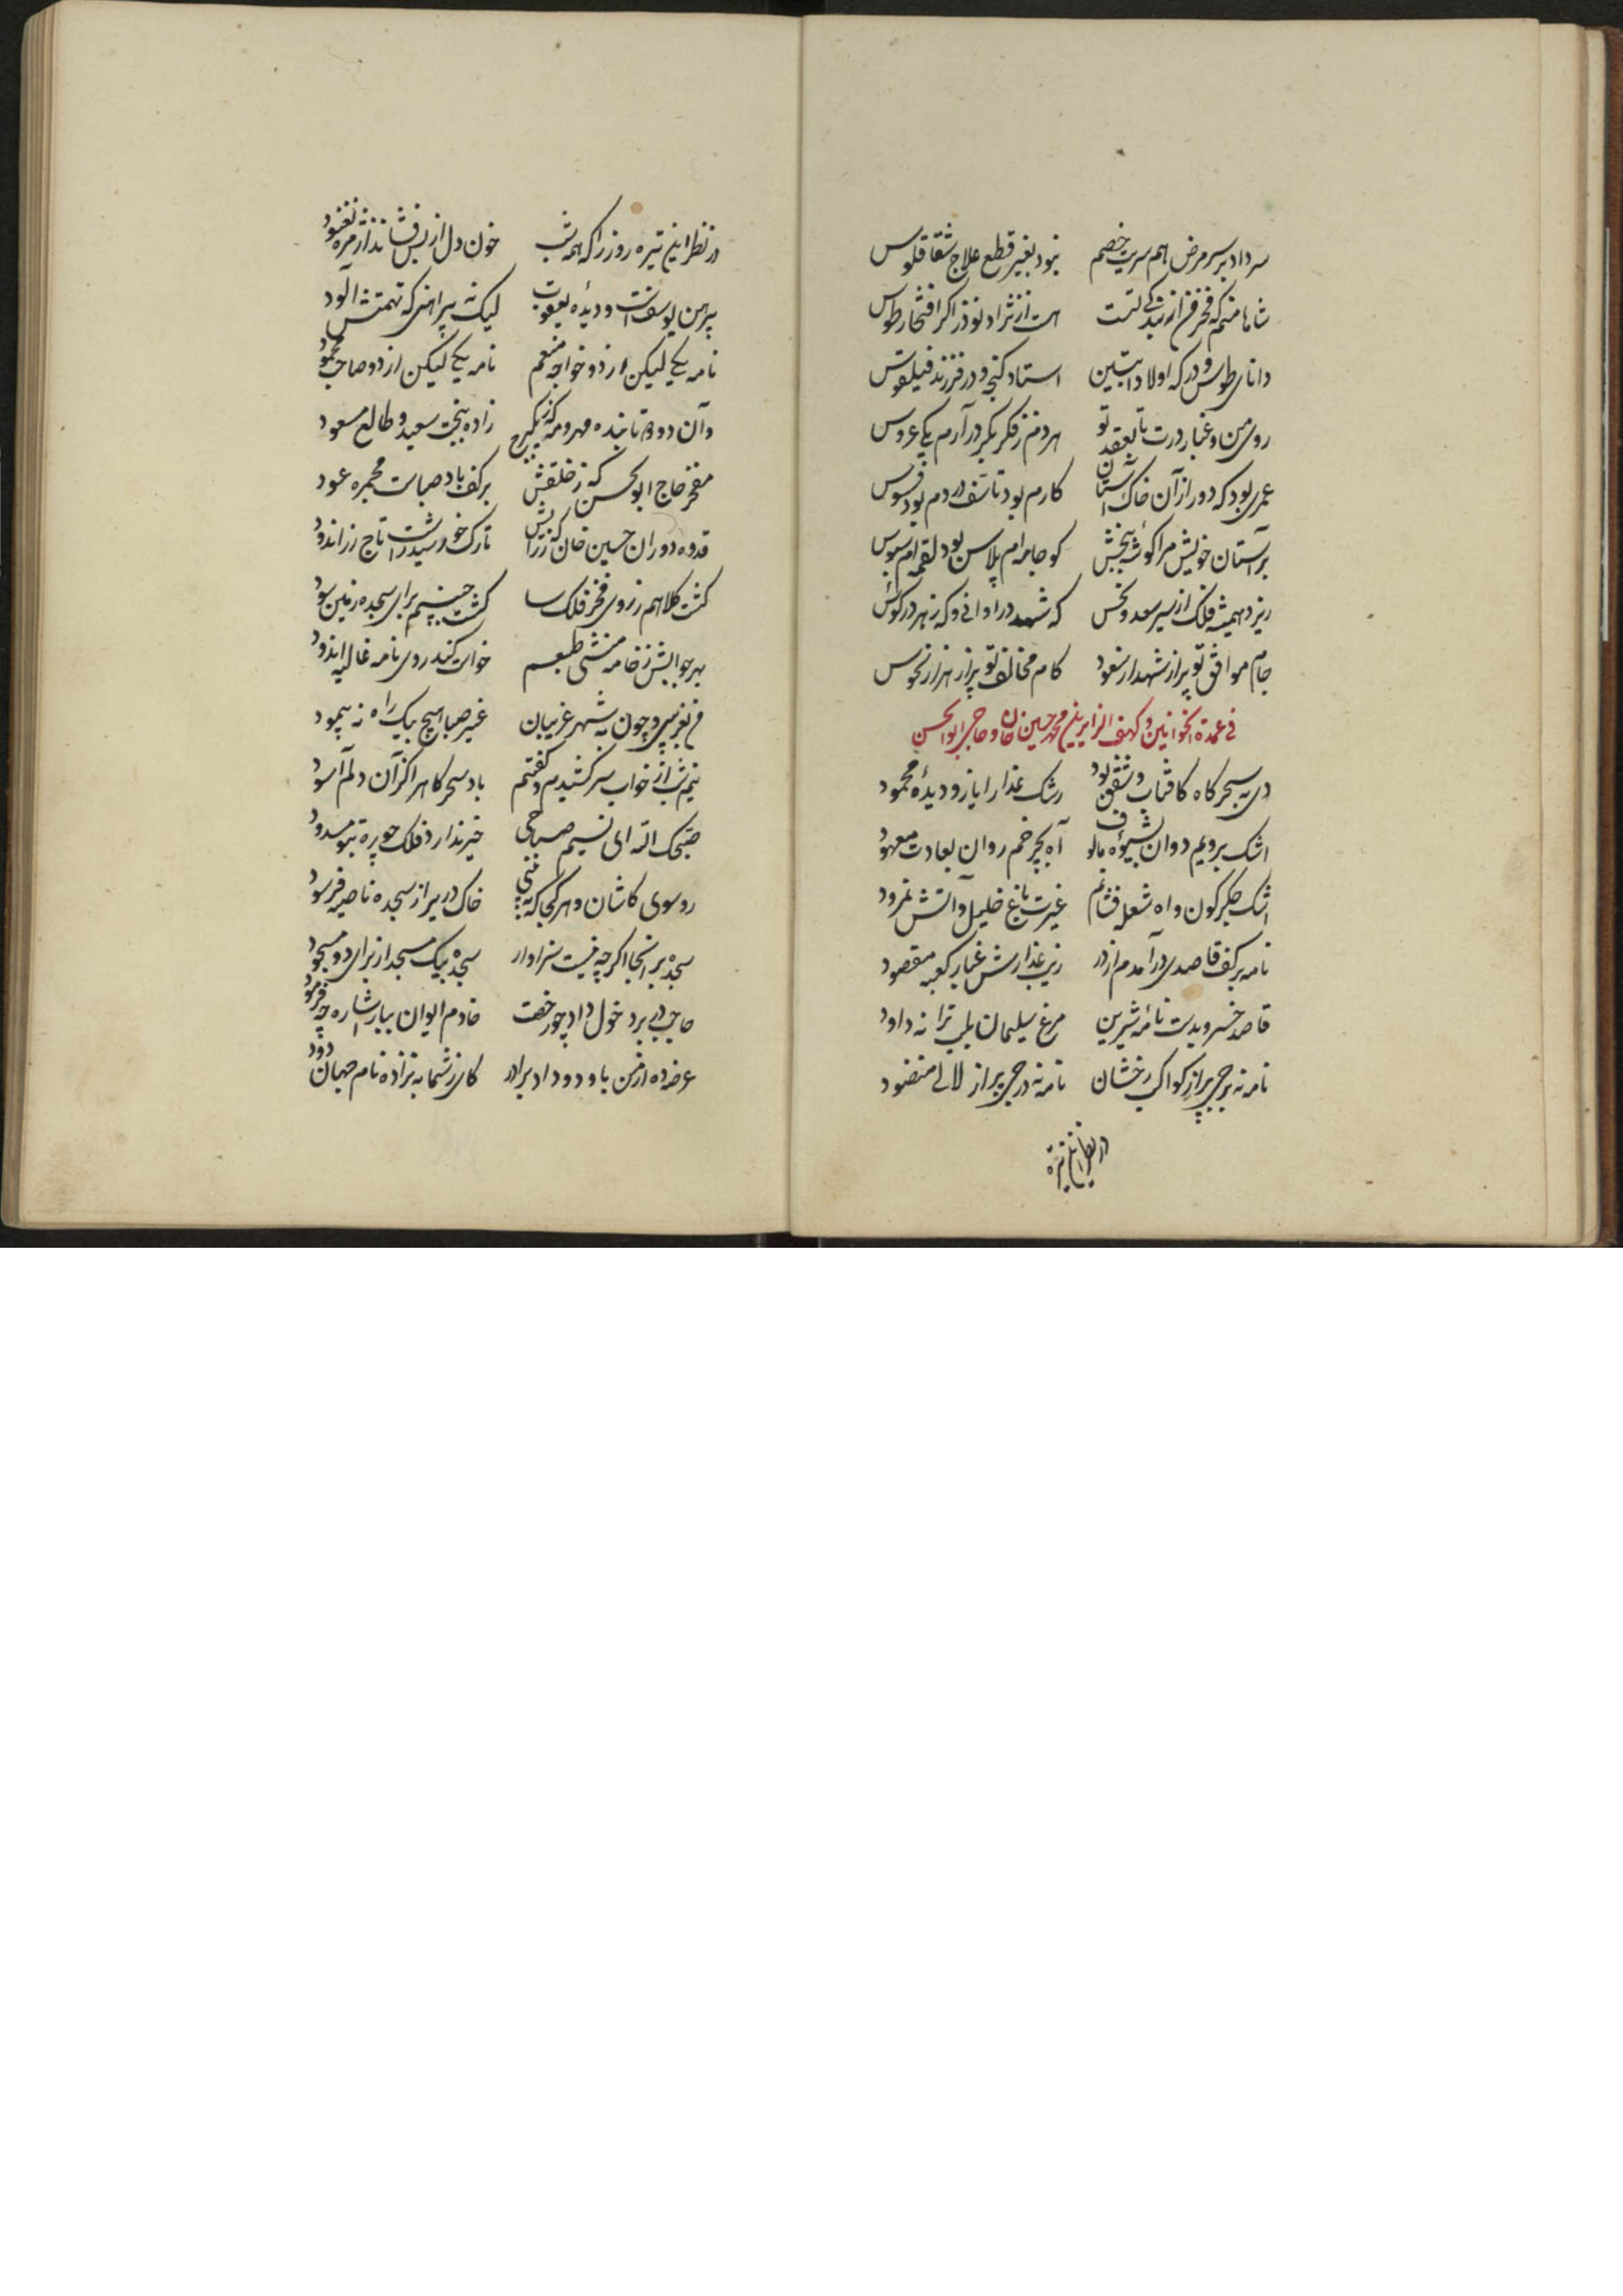 سر داد بر سر مرض اهم سریت خصم نبود بغیر قطع علاج شقاقلوس
شاها منم که فخر من از بندکی تست هست از نژاد نوذر اکر افتخار طوس
دانای طوس و درکه اولاد آبتین استاد کنجه و در فرزند فیلقوس
روی من و غبار درت تا بعقد تو هر دم ز فکر بکر در آرم یکی عروس
عمری بود که دور از آن خاک آستان کارم بود تاسف و دردم بود فسوس
بر آستان خویش مرا کوشه ببخش کو جامه‌ام پلاس بود لقمه‌ام سبوس
ریزد همیشه فلک از سیر سعد و نحس که شهد در اوانی و که زهر در کوس
جام موافق تو پر از شهد از سعود کام مخالف تو پر از زهر از نحوس
فی عمدة الخوانین و کهف الزایرین محمد حسین خان و حاجی ابوالحسن
دی به سحرکاه کافتاب و شفق بود رشک عذار ایاز و دیدهٔ محمود
اشک برویم دوان بشیوه مالوف آه بچرخم روان بعادت معهود
اشک جکرکون و اه شعله فشانم غیرت باغ خلیل و آتش نمرود
نامه بر کف قاصدی در آمدم از در زیب عذارش غبار کعبه مقصود
قاصد خسرو بدست نامهٔ شیرین مرغ سلیمان بلب ترانه داود
نامه نه برجی پر از کواکب رخشان نامه نه درجی پر از لالی منضود
در نظر این تیره
در نظر این تیره روز را که همه شب خون دل از بس فشاند از مژه نغنود
پیرهن یوسف است و دیدهٔ یعقوب لیک نه پیراهنی که تهمتش آلود
نامه یکی لیکن از دو خواجه منعم نامه یکی لیکن از دو صاحب محمود
وآن دو دو تابنده مهر و مه که ز یک برج زاده ببخت سعید و طالع مسعود
مفخر حاج ابوالحسن که ز خلقش بر کف باد صباست مجمره عود
قدوه دوران حسین خان که ز رایش تارک خورشید راست تاج زر اندود
کشت کلاهم ز روی فخر فلک سا کشت جبینم برای سجده زمین سود
بهر جوابش ز خامه منشی طبعم خواست کند روی نامه غالیه اندود
من بغریبی و چون به شهر غریبان غیر صبا هیچ پیک راه نه پیمود
نیم شب از خواب سر کشیدم و کفتم باد سحرکاه را کز آن دلم آسود
صبحک الله ای نسیم صباحی خیر ندارد فلک چو پره تو مسدود
رو سوی کاشان و هر کجا که ببینی خاک در پر از سجده ناصیه فرسود
سجده بر آنجا اکر چه نیست سزاوار سجده بیک مسجد از برای دو مسجود
حاجب در بر دخول داد چو رخصت خادم ایوان ببار اشاره چه فرمود
عرضه ده از من با ودود داد برادر کای ز شما به نزاده نام جهان زود